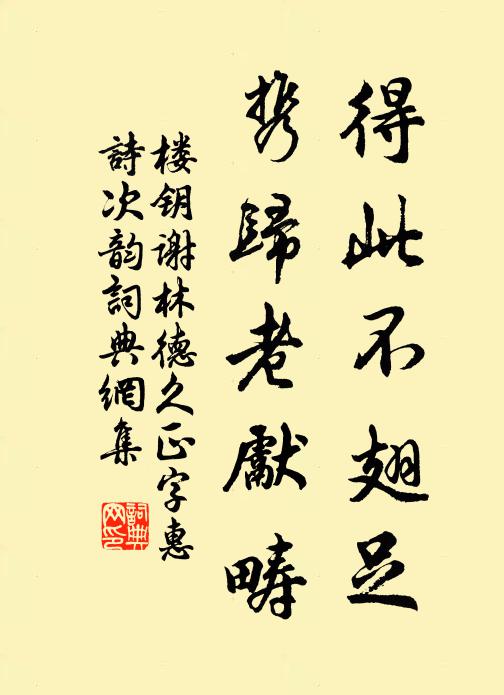 得此不翅足
携歸老獻畴
楼钥谢林德久正字惠
詩次韵詞典網集
詞典网印